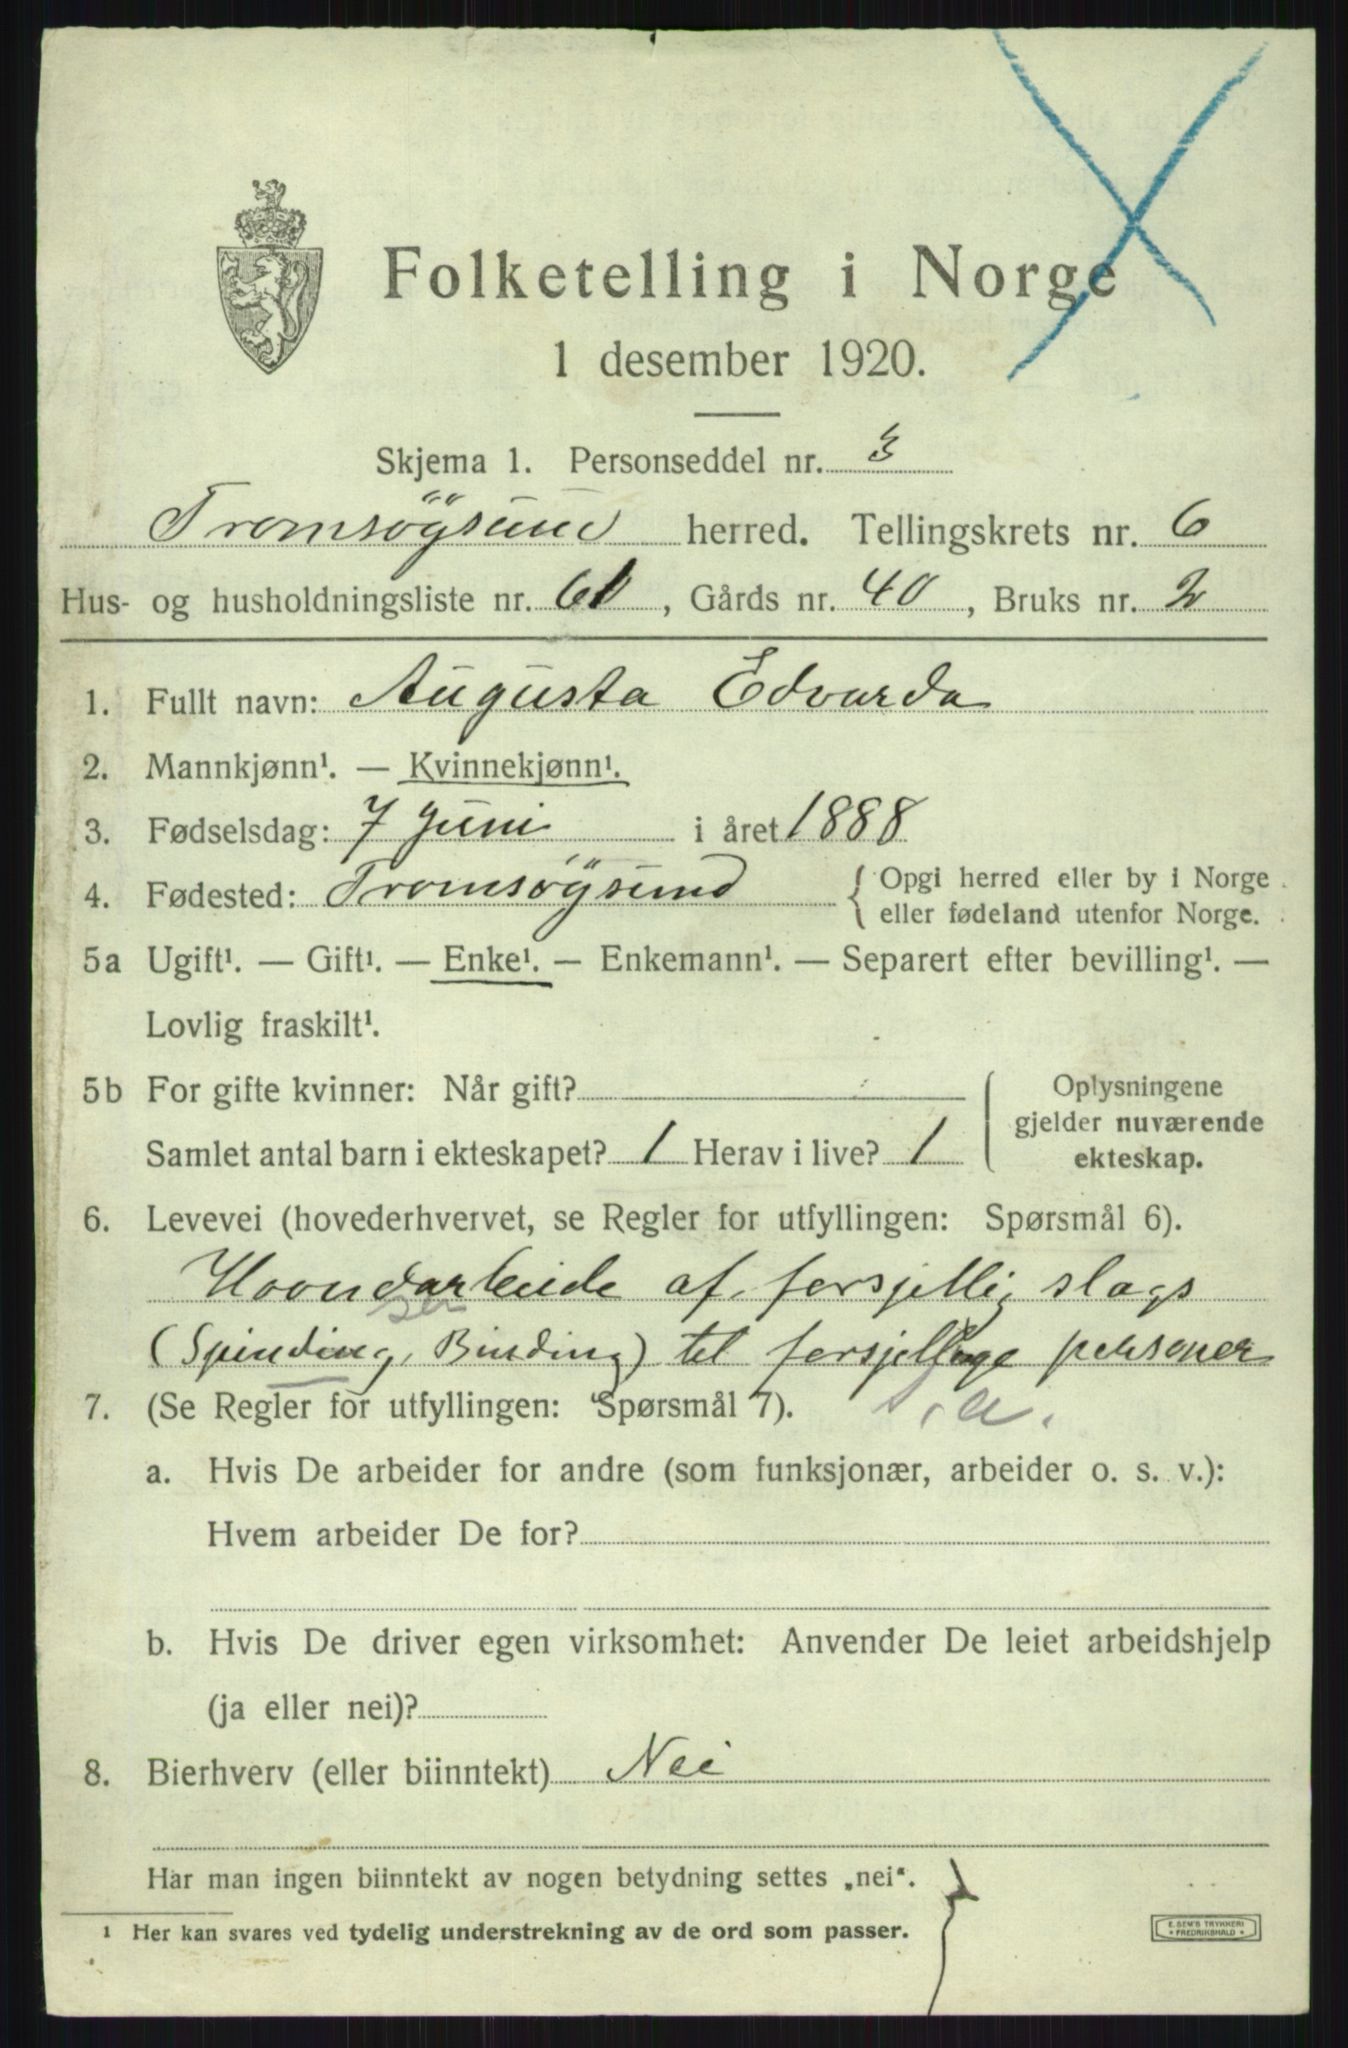 Folketelling i Norge
1 desember 1920.
Skjema 1. Personseddel nr. 3
Tromsöysund herred. Tellingskrets nr. 6
Hus- og husholdningsliste nr. 61, Gårds nr. 40, Bruks nr. 2
1. Fullt navn: Augusta Edvarda
2. Mannkjønn¹. — Kvinnekjønn¹.
3. Fødselsdag: 7 Juni i året 1888
4. Fødested: Tromsöysund { Opgi herred eller by i Norge
eller fødeland utenfor Norge.
5a Ugift¹. — Gift¹. — Enke¹. — Enkemann¹. — Separert efter bevilling¹. —
Lovlig fraskilt¹.
5b For gifte kvinner: Når gift?
Samlet antal barn i ekteskapet? 1 Herav i live? 1
Oplysningene
gjelder nuværende
ekteskap.
6. Levevei (hovederhvervet, se Regler for utfyllingen: Spørsmål 6).
Haandarbeide af forsjellig slags
(Spinding, Binding) til forsjellige personer
7. (Se Regler for utfyllingen: Spørsmål 7).
a.
a. Hvis De arbeider for andre (som funksjonær, arbeider o. s. v.):
Hvem arbeider De for?
b. Hvis De driver egen virksomhet: Anvender De leiet arbeidshjelp
(ja eller nei)?
8. Bierhverv (eller biinntekt) Nei
Har man ingen biinntekt av nogen betydning settes „nei“.
¹ Her kan svares ved tydelig understrekning av de ord som passer.
E. SEM'S TRYKKERI
FREDRIKSHALD